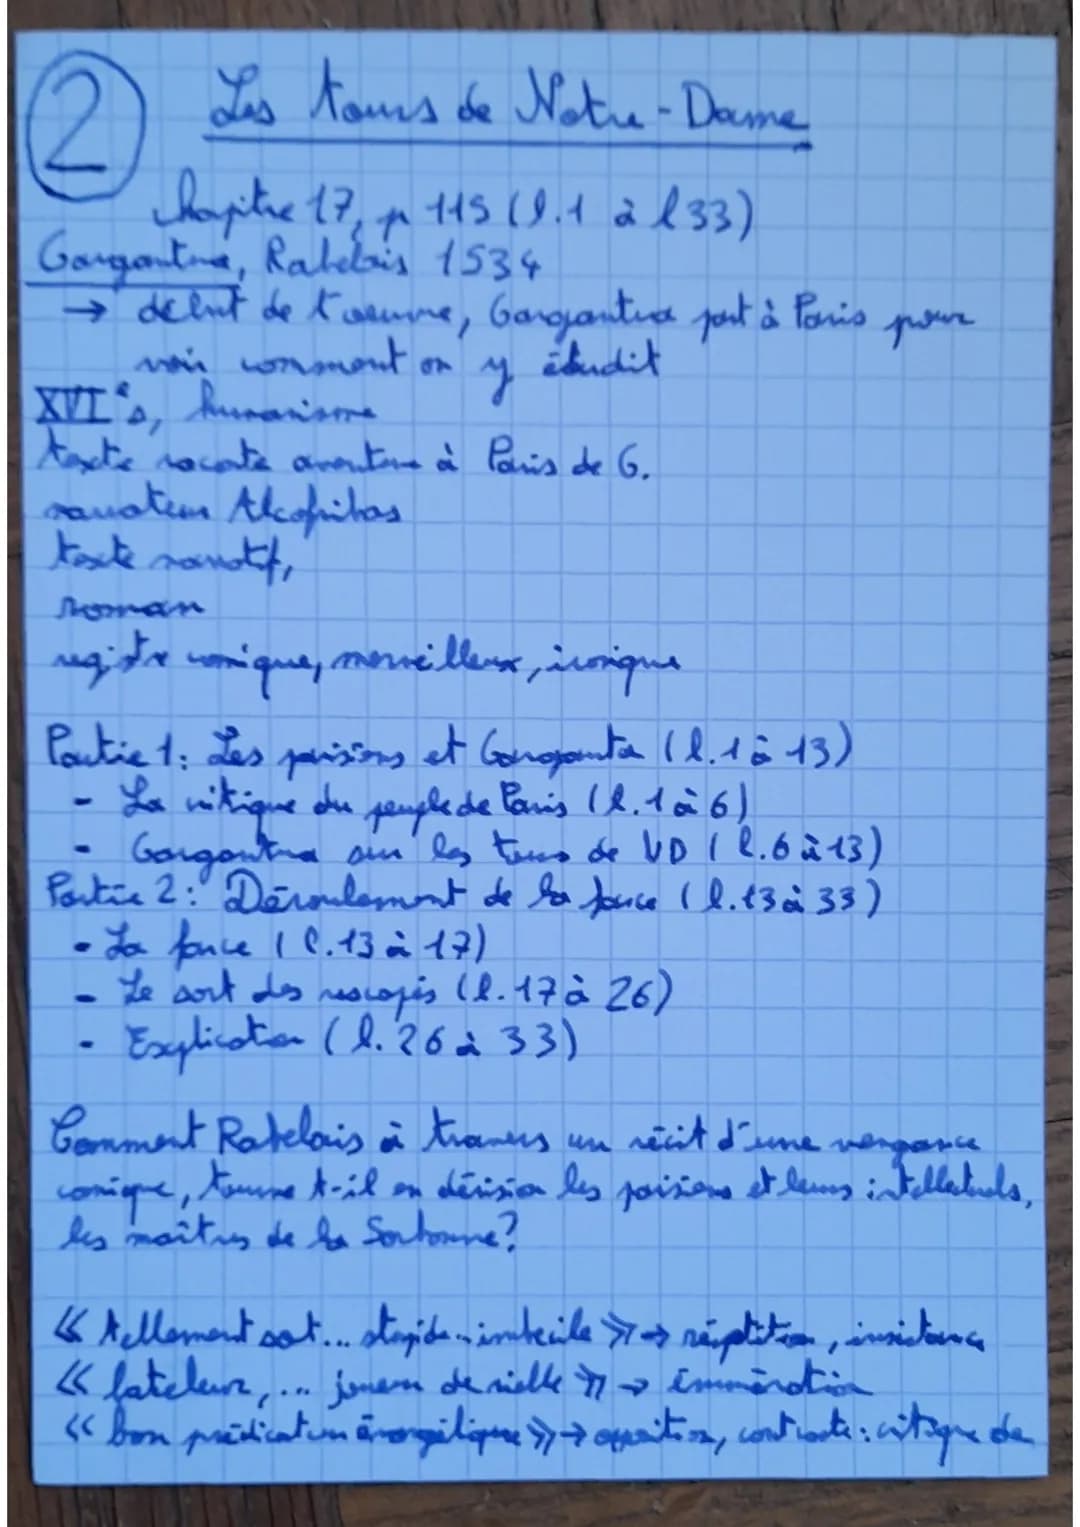 2
Les tours de Notre-Dame
Chapitre 17, p 115 (l.1 à l33)
Gargantua, Rabelais 1534
→ début de l'oeuvre, Gargantua part à Paris pour
voir comment on y étudit
XVIe s, humanisme
texte raconte aventure à Paris de G.
narrateur Alcofribas
texte narratif,
roman
registre comique, merveilleux, ironique
Partie 1: Les parisiens et Garganta (l.1 à 13)
- La critique du peuple de Paris (l.1 à 6)
- Gargantua sur les tours de ND (l.6 à 13)
Partie 2: Déroulement de la farce (l.13 à 33)
- La farce (l.13 à 17)
- Le sort des rescapés (l.17 à 26)
- Explication (l.26 à 33)
Comment Rabelais à travers un récit d'une vengance
comique, tourne t-il en dérision les parisiens et leurs intellectuels,
les maîtres de la Sorbonne?
« tellement sot... stupide... imbécile » → répétition, insistance
« bateleur, ... joueur de vielle » → énumération
« bon prédicateur évangélique » → opposition, contraste : critique de